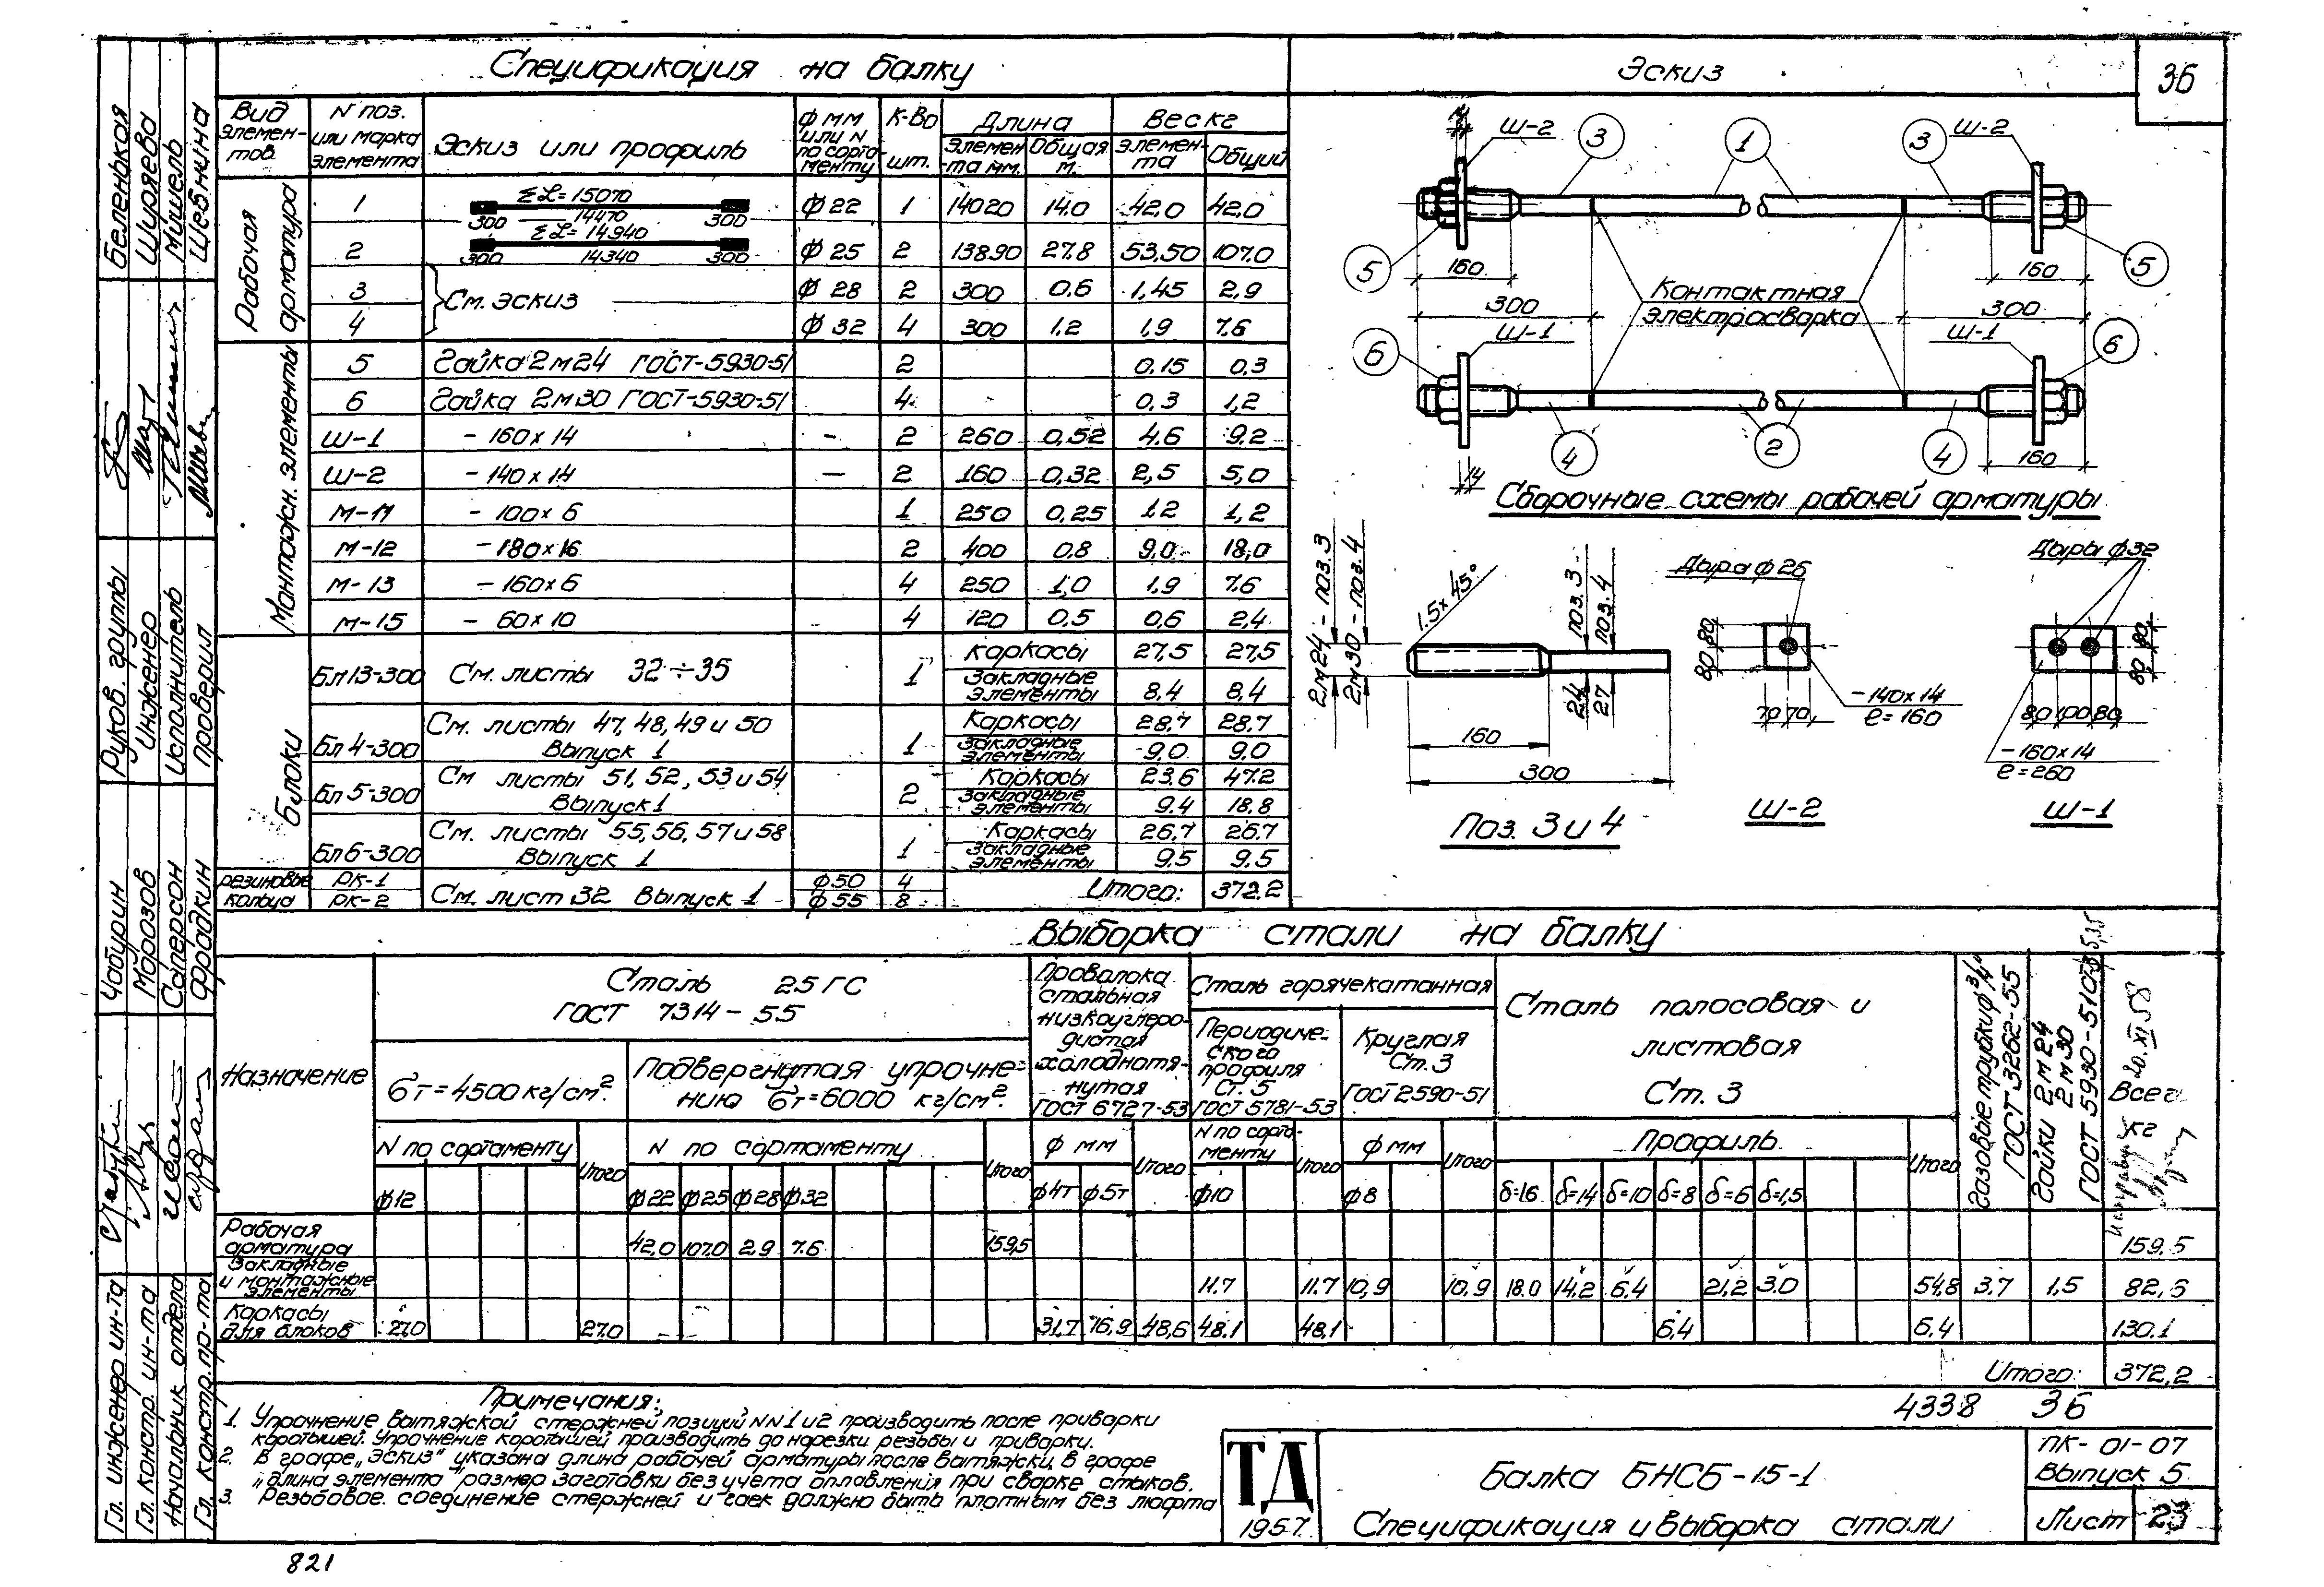 Спецификация на балку
Эскиз
36
Вид элемен-тов.
N поз. или марка элемента
Эскиз или профиль
ф мм или N по сорта менту
К-во шт.
Длина
Вес кг
Элемен-та мм.
Общая м.
Элемен-та
Общий
Рабочая арматура
1 ΣL=15070 300 14470 300 ф 22 1 14020 14.0 42.0 42.0
2 ΣL=14940 300 14340 300 ф 25 2 13890 27.8 53,50 107.0
3 См. эскиз ф 28 2 300 0.6 1,45 2,9
4 ф 32 4 300 1.2 1.9 7.6
Монтажн. элементы
5 Гайка 2м24 ГОСТ-5930-51 2 0.15 0.3
6 Гайка 2м30 ГОСТ-5930-51 4 0.3 1,2
Ш-1 - 160×14 - 2 260 0,52 4.6 9.2
Ш-2 - 140×14 — 2 160 0,32 2,5 5,0
М-11 - 100×6 1 250 0,25 1.2 1,2
М-12 - 180×16 2 400 0.8 9.0 18,0
М-13 - 160×6 4 250 1,0 1.9 7.6
М-15 - 60×10 4 120 0.5 0,6 2,4
Блоки
Бл13-300 См. листы 32÷35 1 каркасы 27,5 27,5
Закладные элементы 8.4 8,4
Бл 4-300 См. листы 47, 48, 49 и 50 Выпуск 1 1 Каркасы 28.7 28.7
Закладные элементы 9.0 9.0
Бл 5-300 См листы 51, 52, 53 и 54 Выпуск 1 2 Каркасы 23.6 47.2
Закладные элементы 9.4 18.8
Бл6-300 См. листы 55, 56, 57 и 58 Выпуск 1 1 Каркасы 26.7 26.7
Закладные элементы 9.5 9.5
резиновые кольца РК-1 РК-2 См. лист 32 Выпуск 1 ф50 4 ф55 8 Итого: 372.2
14 Ш-2 3 1 3 Ш-2
5 160 160 5
300 Контактная электросварка 300
6 Ш-1 Ш-1 6
4 2 4 160
14
Сборочные схемы рабочей арматуры
2м24 - поз. 3
2м30 - поз. 4
1.5×45°
24 поз. 3
27 поз. 4
160
300
Поз. 3 и 4
Дыра ф 26
80 80
70 70
-140×14
е=160
Ш-2
Дыры ф32
80 80
80 100 80
-160×14
е=260
Ш-1
Выборка стали на балку
Назначение
Сталь 25ГС
ГОСТ 7314-55
бт=4500 кг/см².
Подвергнутая упрочне-нию бт=6000 кг/см².
N по сортаменту
Итого
N по сортаменту
Итого
Проволока стальная низкоуглеро-дистая холоднотя-нутая ГОСТ 6727-53
ф мм
Итого
Сталь горячекатанная
Периодиче-ского профиля Ст. 5 ГОСТ 5781-53
N по сорта-менту
Итого
Круглая Ст. 3 ГОСТ 2590-51
ф мм
Итого
Сталь полосовая и листовая
Ст. 3
Профиль
Итого
Газовые трубки ф 3/4" ГОСТ 3262-55
Гайки 2м24 2м30 ГОСТ 5930-51
Всего кг
20.XI 58
ф12 ф22 ф25 ф28 ф32 ф4т ф5т ф10 ф8 δ=16 δ=14 δ=10 δ=8 δ=6 δ=1,5
Рабочая арматура 42,0 107.0 2,9 7.6 159,5 159.5
Закладные и монтажные элементы 11.7 11.7 10,9 10,9 18.0 14,2 6.4 21,2 3.0 54,8 3.7 1.5 82,6
Каркасы для блоков 27.0 27.0 31,7 16,9 48,6 48.1 48,1 6,4 6.4 130.1
Итого: 372,2
4338 36
Примечания:
1. Упрочнение вытяжкой стержней позиций NN 1 и 2 производить после приварки
коротышей. Упрочнение коротышей производить до нарезки резьбы и приварки.
2. В графе „Эскиз" указана длина рабочей арматуры после вытяжки, в графе
„длина элемента" размер заготовки без учета оплавления при сварке стыков.
3. Резьбовое соединение стержней и гаек должно быть плотным без люфта
ТД
1957г.
Балка БНСБ-15-1
Спецификация и выборка стали
ПК-01-07
Выпуск 5
Лист 23
Беленькая
Ширяева
Мишель
Щебнина
Руков. группы
Инженер
Исполнитель
Проверил
Чабурин
Морозов
Саперсон
Фрадкин
Гл. инженер ин-та
Гл. констр. ин-та
Начальник отдела
Гл. констр. пр-та
821